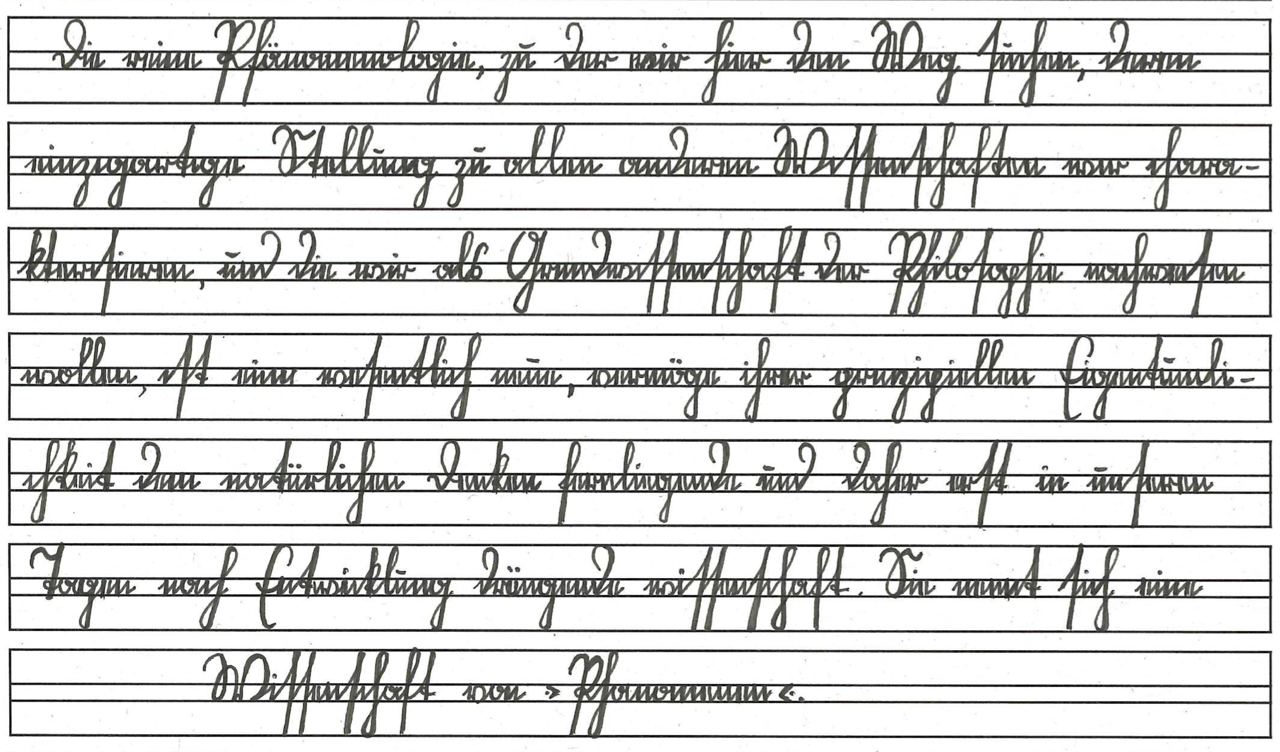 Die reine Phänomenologie, zu der wir hier den Weg suchen, deren
einzigartige Stellung zu allen anderen Wissenschaften wir chara-
kterisieren, und die wir als Grundwissenschaft der Philosophie nachweisen
wollen, ist eine wesentlich neue, vermöge ihrer prinzipiellen Eigentümli-
chkeit dem natürlichen Denken fernliegende und daher erst in unseren
Tagen nach Entwicklung drängende wissenschaft. Sie nennt sich eine
Wissenschaft von »Phanomenen«.